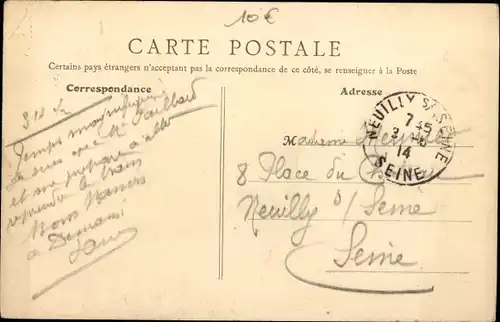 10€
CARTE POSTALE
Certains pays étrangers n'acceptant pas la correspondance de ce côté, se renseigner à la Poste
Correspondance
Adresse
Temps magnifique
Je suis avec Mr
et me prépare à aller
reprendre le train
Bons Baisers
à Demain
Madame Meunier
8 Place du
Neuilly s/ Seine
Seine
NEUILLY S/ SEINE
7 45
14
SEINE